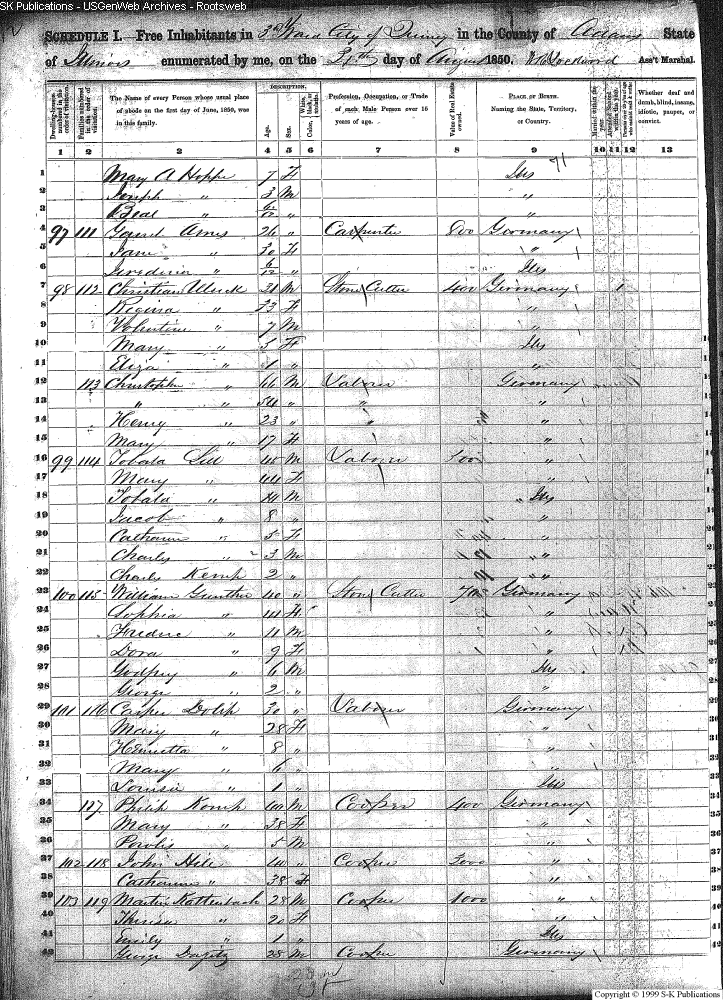 SK Publications - USGenWeb Archives - Rootsweb
SCHEDULE I.—Free Inhabitants in 3rd Ward City of Quincy in the County of Adams State
of Illinois enumerated by me, on the day of August 1850. Ass't Marshal.
Dwelling-houses numbered in the order of visitation.
Families numbered in the order of visitation.
The Name of every Person whose usual place of abode on the first day of June, 1850, was in this family.
DESCRIPTION.
Age.
Sex.
White, black, or mulatto. Color,
Profession, Occupation, or Trade of each Male Person over 15 years of age.
Value of Real Estate owned.
PLACE OF BIRTH. Naming the State, Territory, or Country.
Married within the year.
Attended School within the year.
Persons over 20 y'rs of age who cannot read & write.
Whether deaf and dumb, blind, insane, idiotic, pauper, or convict.
1 2 3 4 5 6 7 8 9 10 11 12 13
71
1 Mary A Hoppe 7 F Ills
2 Joseph " 3 M "
3 " 6/12 " "
4 97 111 Ames 26 " Carpenter 800 Germany
5 Jane " 30 F "
6 " 6/12 " Ills
7 98 112 Christian 31 M Stone Cutter 400 Germany 1
8 Regina " 33 F "
9 Volentine " 7 M "
10 Mary " 5 F Ills
11 Eliza " 1 " "
12 113 Christopher " 66 M Labour Germany
13 " " 54 " " "
14 Henry " 23 " " "
15 Mary " 17 F "
16 99 114 Tobala Lill 45 M Labour "
17 Mary " 44 F "
18 Tobala " 14 M Ills
19 Jacob " 8 " "
20 Catharine " 5 F "
21 Charles " 3 M "
22 Charles Kemp 2 " "
23 100 115 William Gunther 40 " Stone Cutter Germany
24 Sophia " 41 F "
25 Fredric " 11 M "
26 Dora " 9 F "
27 Godfrey " 6 M Ills
28 George " 2 " "
29 101 116 Casper Dolph 30 " Labour Germany
30 Mary " 28 F "
31 Henrietta " 8 " "
32 Mary " 6 " "
33 Louisa " 1 " Ills
34 117 Philip Komp 40 M Cooper 400 Germany
35 Mary " 38 F "
36 " 5 M "
37 102 118 John Hill 40 " Cooper "
38 Catharine " 38 F "
39 103 119 Martin Kattenbach 28 M Cooper 1000 "
40 Theresa " 20 F "
41 Emily " 1 " Ills
42 George 28 M Cooper Germany
Copyright © 1999 S-K Publications